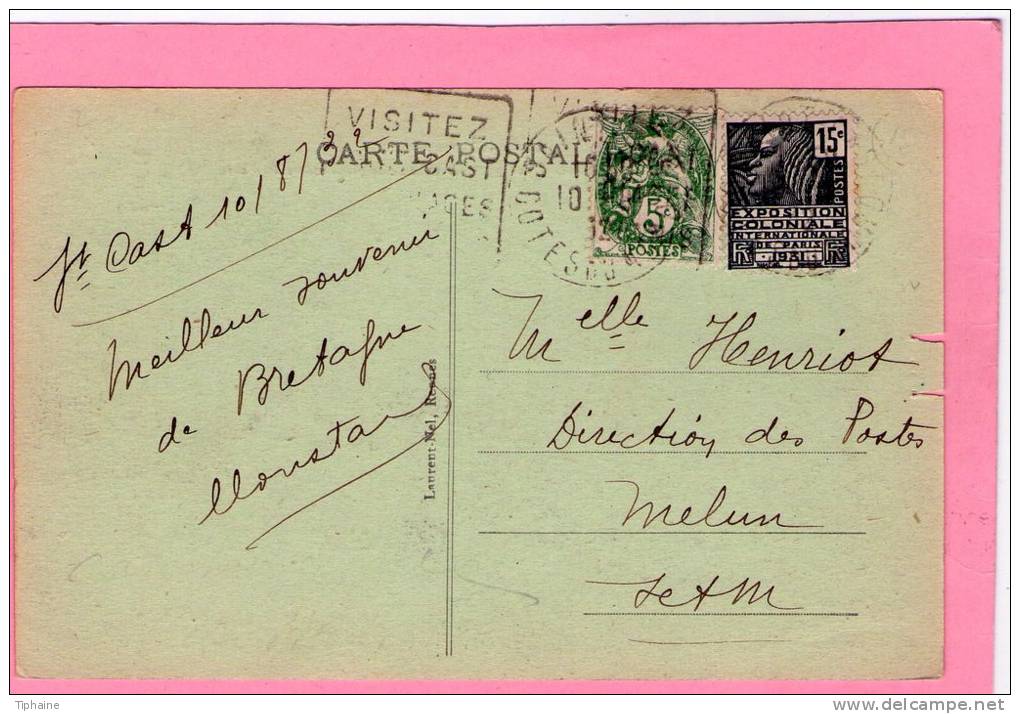 VISITEZ
CARTE POSTALE
CAST
COTES DU
5
POSTES
15c
POSTES
EXPOSITION
COLONIALE
INTERNATIONALE
DE PARIS
1931
St Cast 10/8/32
Meilleur souvenir
de Bretagne
Laurent-Nel, Rennes
Melle Henriot
Direction des Postes
Melun
S et M
Tiphaine
delcampe.net